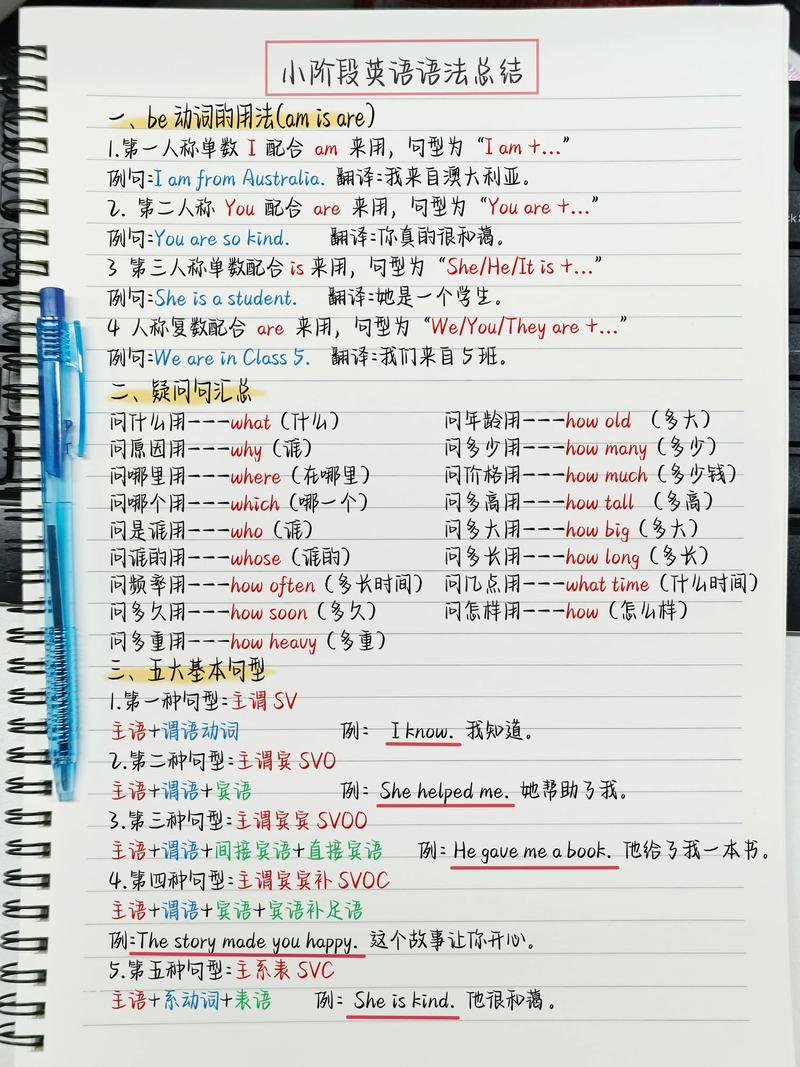 小阶段英语语法总结
一、be 动词的用法(am is are)
1.第一人称单数 I 配合 am 来用，句型为 “I am +...”
例句:I am from Australia. 翻译:我来自澳大利亚。
2. 第二人称 You 配合 are 来用，句型为 “You are +...”
例句:You are so kind. 翻译:你真的很和蔼。
3 第三人称单数配合 is 来用，句型为 “She/He/It is +...”
例句:She is a student. 翻译:她是一个学生。
4 人称复数配合 are 来用，句型为 “We/You/They are +...”
例句:We are in Class 5. 翻译:我们来自5班。
二、疑问句汇总
问什么用---what（什么） 问年龄用---how old （多大）
问原因用---why（谁） 问多少用---how many（多少）
问哪里用---where（在哪里） 问价格用---how much（多少钱）
问哪个用---which（哪一个） 问多高用---how tall （多高）
问是谁用---who（谁） 问多大用---how big（多大）
问谁的用---whose（谁的） 问多长用---how long（多长）
问频率用---how often（多长时间） 问几点用---what time（什么时间）
问多久用---how soon（多久） 问怎样用---how（怎么样）
问多重用---how heavy（多重）
三、五大基本句型
1.第一种句型:主谓 SV
主语+谓语动词 例: I know. 我知道。
2.第二种句型:主谓宾 SVO
主语+谓语+宾语 例: She helped me. 她帮助了我。
3.第三种句型:主谓宾宾 SVOO
主语+谓语+间接宾语+直接宾语 例: He gave me a book. 他给了我一本书。
4.第四种句型:主谓宾宾补 SVOC
主语+谓语+宾语+宾语补足语
例:The story made you happy. 这个故事让你开心。
5.第五种句型:主系表 SVC
主语+系动词+表语 例: She is kind. 他很和蔼。